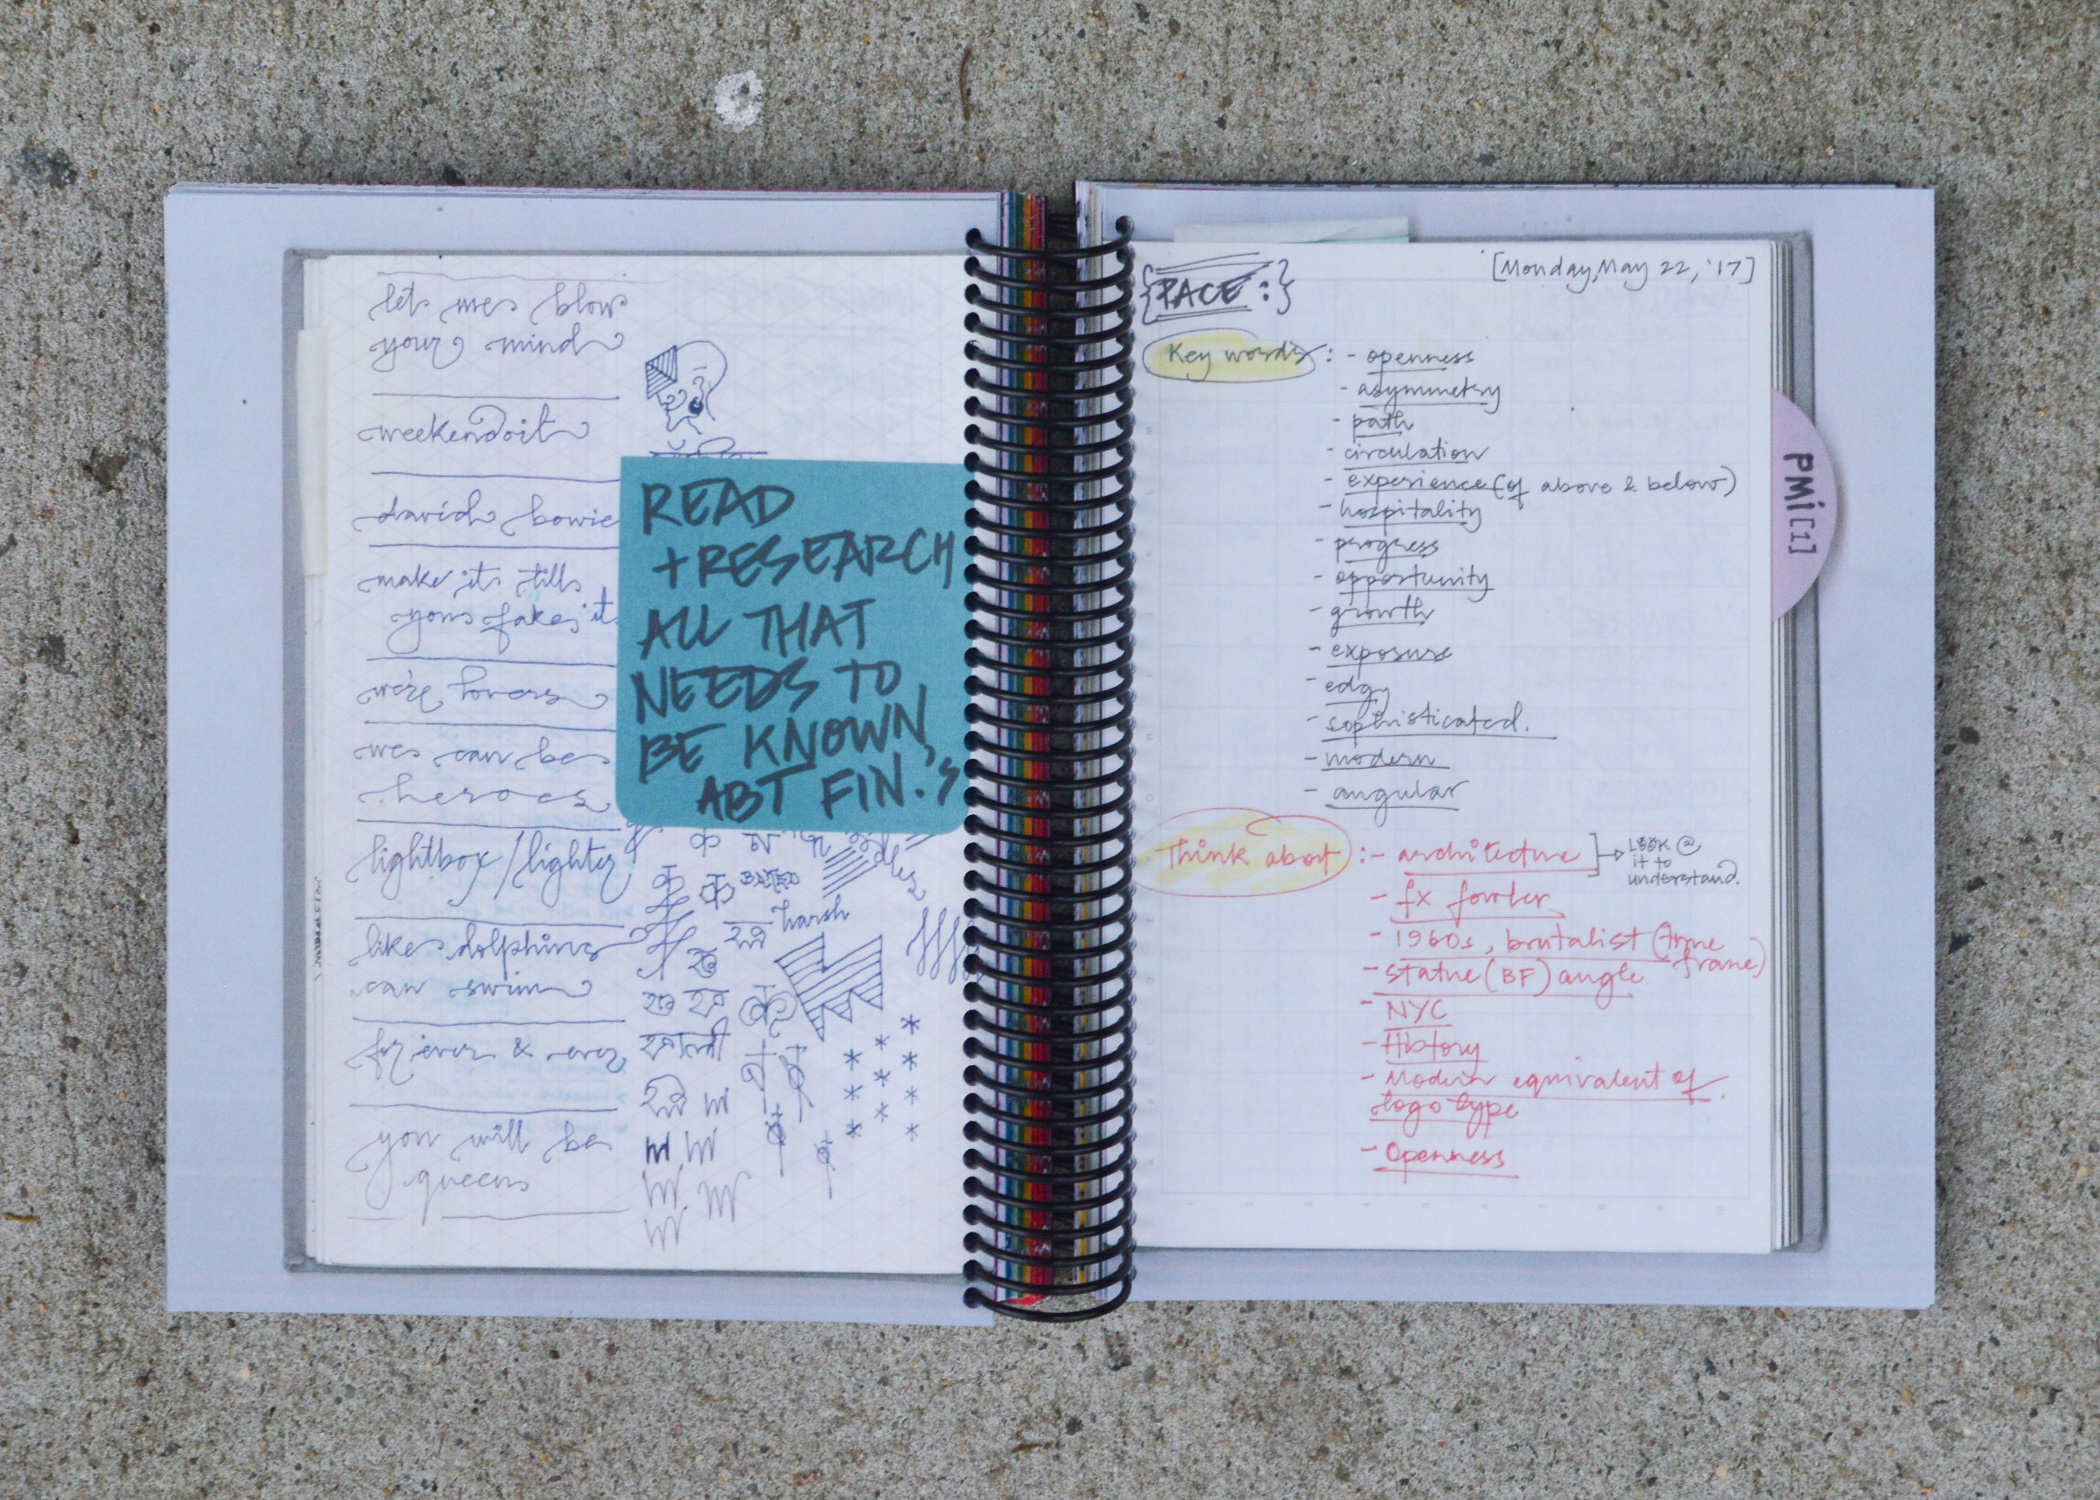 let me blow
your mind
weekendoit
david bowie
make it till
you fake it
we're lovers
we can be
heroes
lightbox/lighter
like dolphins
can swim
for ever & ever
you will be
queens
READ
+RESEARCH
ALL THAT
NEEDS TO
BE KNOWN,
ABT FIN.'s
harsh
{PACE:}
[Monday, May 22, '17]
Key words: - openness
- asymmetry
- path
- circulation
- experience (of above & below)
- hospitality
- progress
- opportunity
- growth
- exposure
- edgy
- sophisticated.
- modern
- angular
Think about: - architecture ]→ LOOK @
it to
understand.
- fx fowler
- 1960s, brutalist (time
frame)
- statue (BF) angle
- NYC
- History
- Modern equivalent of
logo type
- Openness
PMi[1]